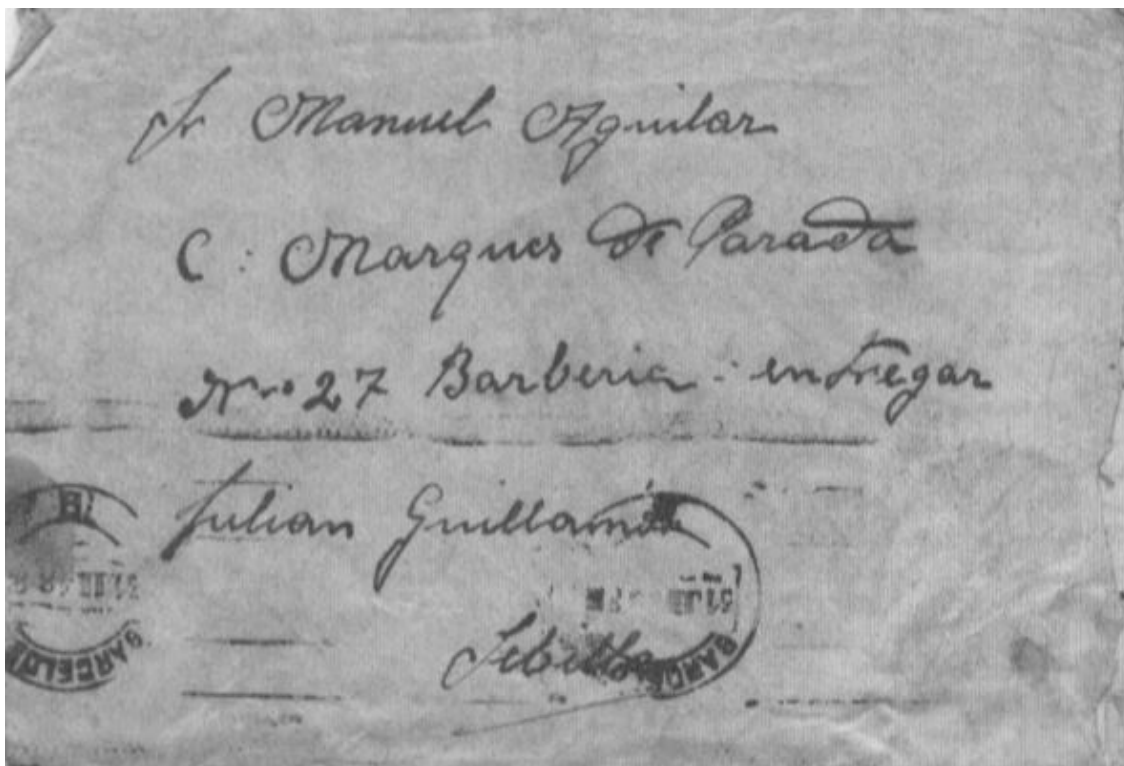 Sr Manuel Aguilar
C: Marques de Parada
Nro 27 Barberia: entregar
Julian Guillamon
Sebilla
BARCELONA
BARCELONA